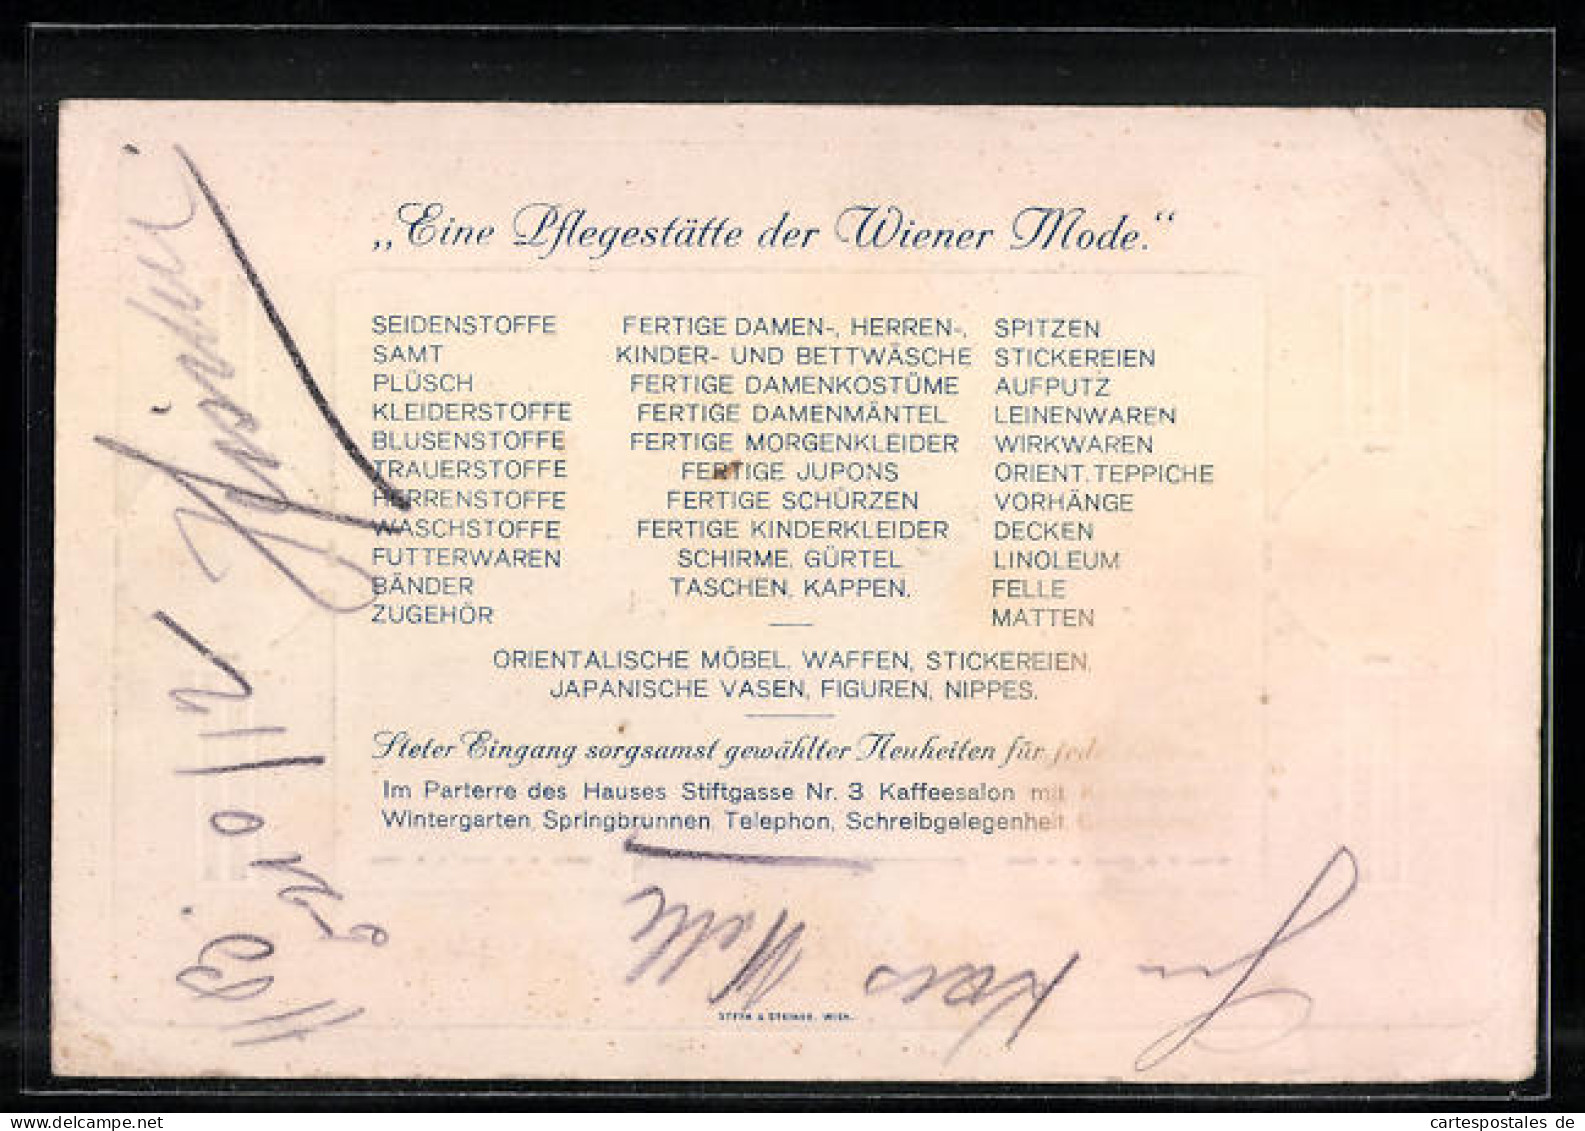 „Eine Pflegestätte der Wiener Mode.“
SEIDENSTOFFE
SAMT
PLÜSCH
KLEIDERSTOFFE
BLUSENSTOFFE
TRAUERSTOFFE
HERRENSTOFFE
WASCHSTOFFE
FUTTERWAREN
BÄNDER
ZUGEHÖR
FERTIGE DAMEN-, HERREN-,
KINDER- UND BETTWÄSCHE
FERTIGE DAMENKOSTÜME
FERTIGE DAMENMÄNTEL
FERTIGE MORGENKLEIDER
FERTIGE JUPONS
FERTIGE SCHÜRZEN
FERTIGE KINDERKLEIDER
SCHIRME, GÜRTEL
TASCHEN, KAPPEN.
SPITZEN
STICKEREIEN
AUFPUTZ
LEINENWAREN
WIRKWAREN
ORIENT. TEPPICHE
VORHÄNGE
DECKEN
LINOLEUM
FELLE
MATTEN
ORIENTALISCHE MÖBEL, WAFFEN, STICKEREIEN,
JAPANISCHE VASEN, FIGUREN, NIPPES.
Steter Eingang sorgsamst gewählter Neuheiten für jede
Im Parterre des Hauses Stiftgasse Nr. 3 Kaffeesalon mit
Wintergarten, Springbrunnen, Telephon, Schreibgelegenheit,
STERN & STEINER, WIEN.
cartespostales de